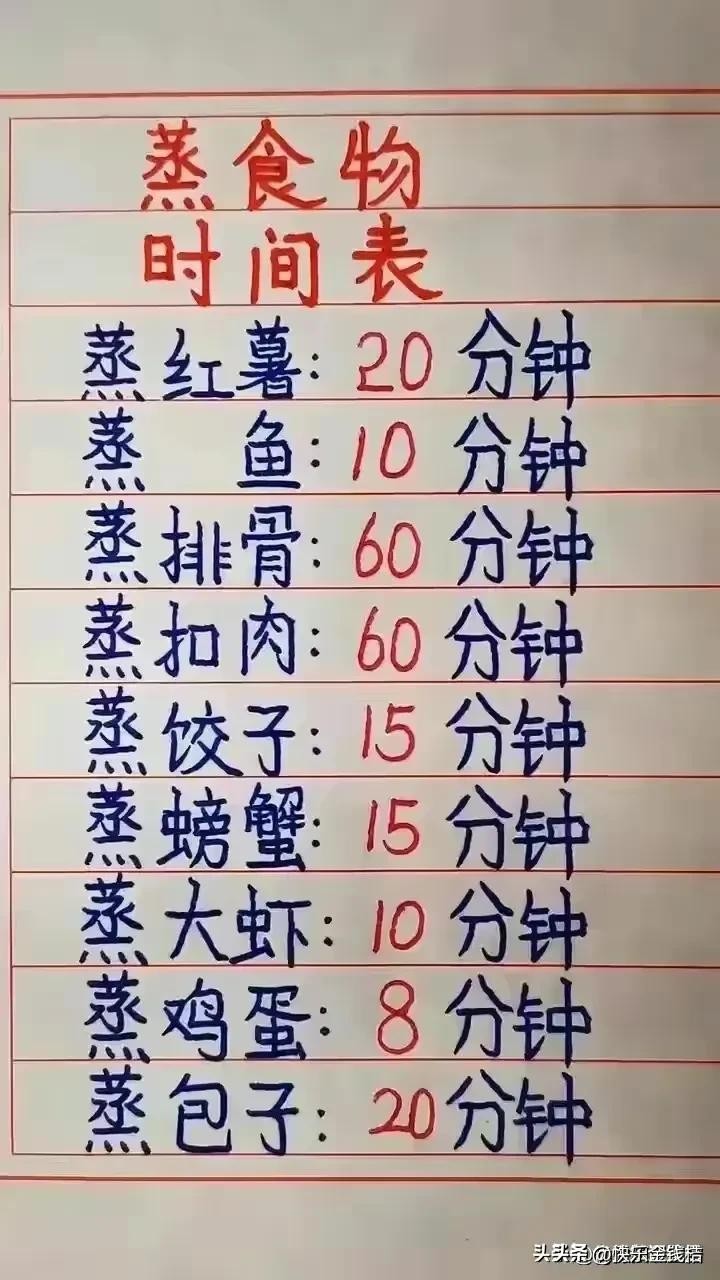 蒸食物
时间表
蒸红薯：20分钟
蒸 鱼：10分钟
蒸排骨：60分钟
蒸扣肉：60分钟
蒸饺子：15分钟
蒸螃蟹：15分钟
蒸大虾：10分钟
蒸鸡蛋：8分钟
蒸包子：20分钟
头条 @快乐金钱桔